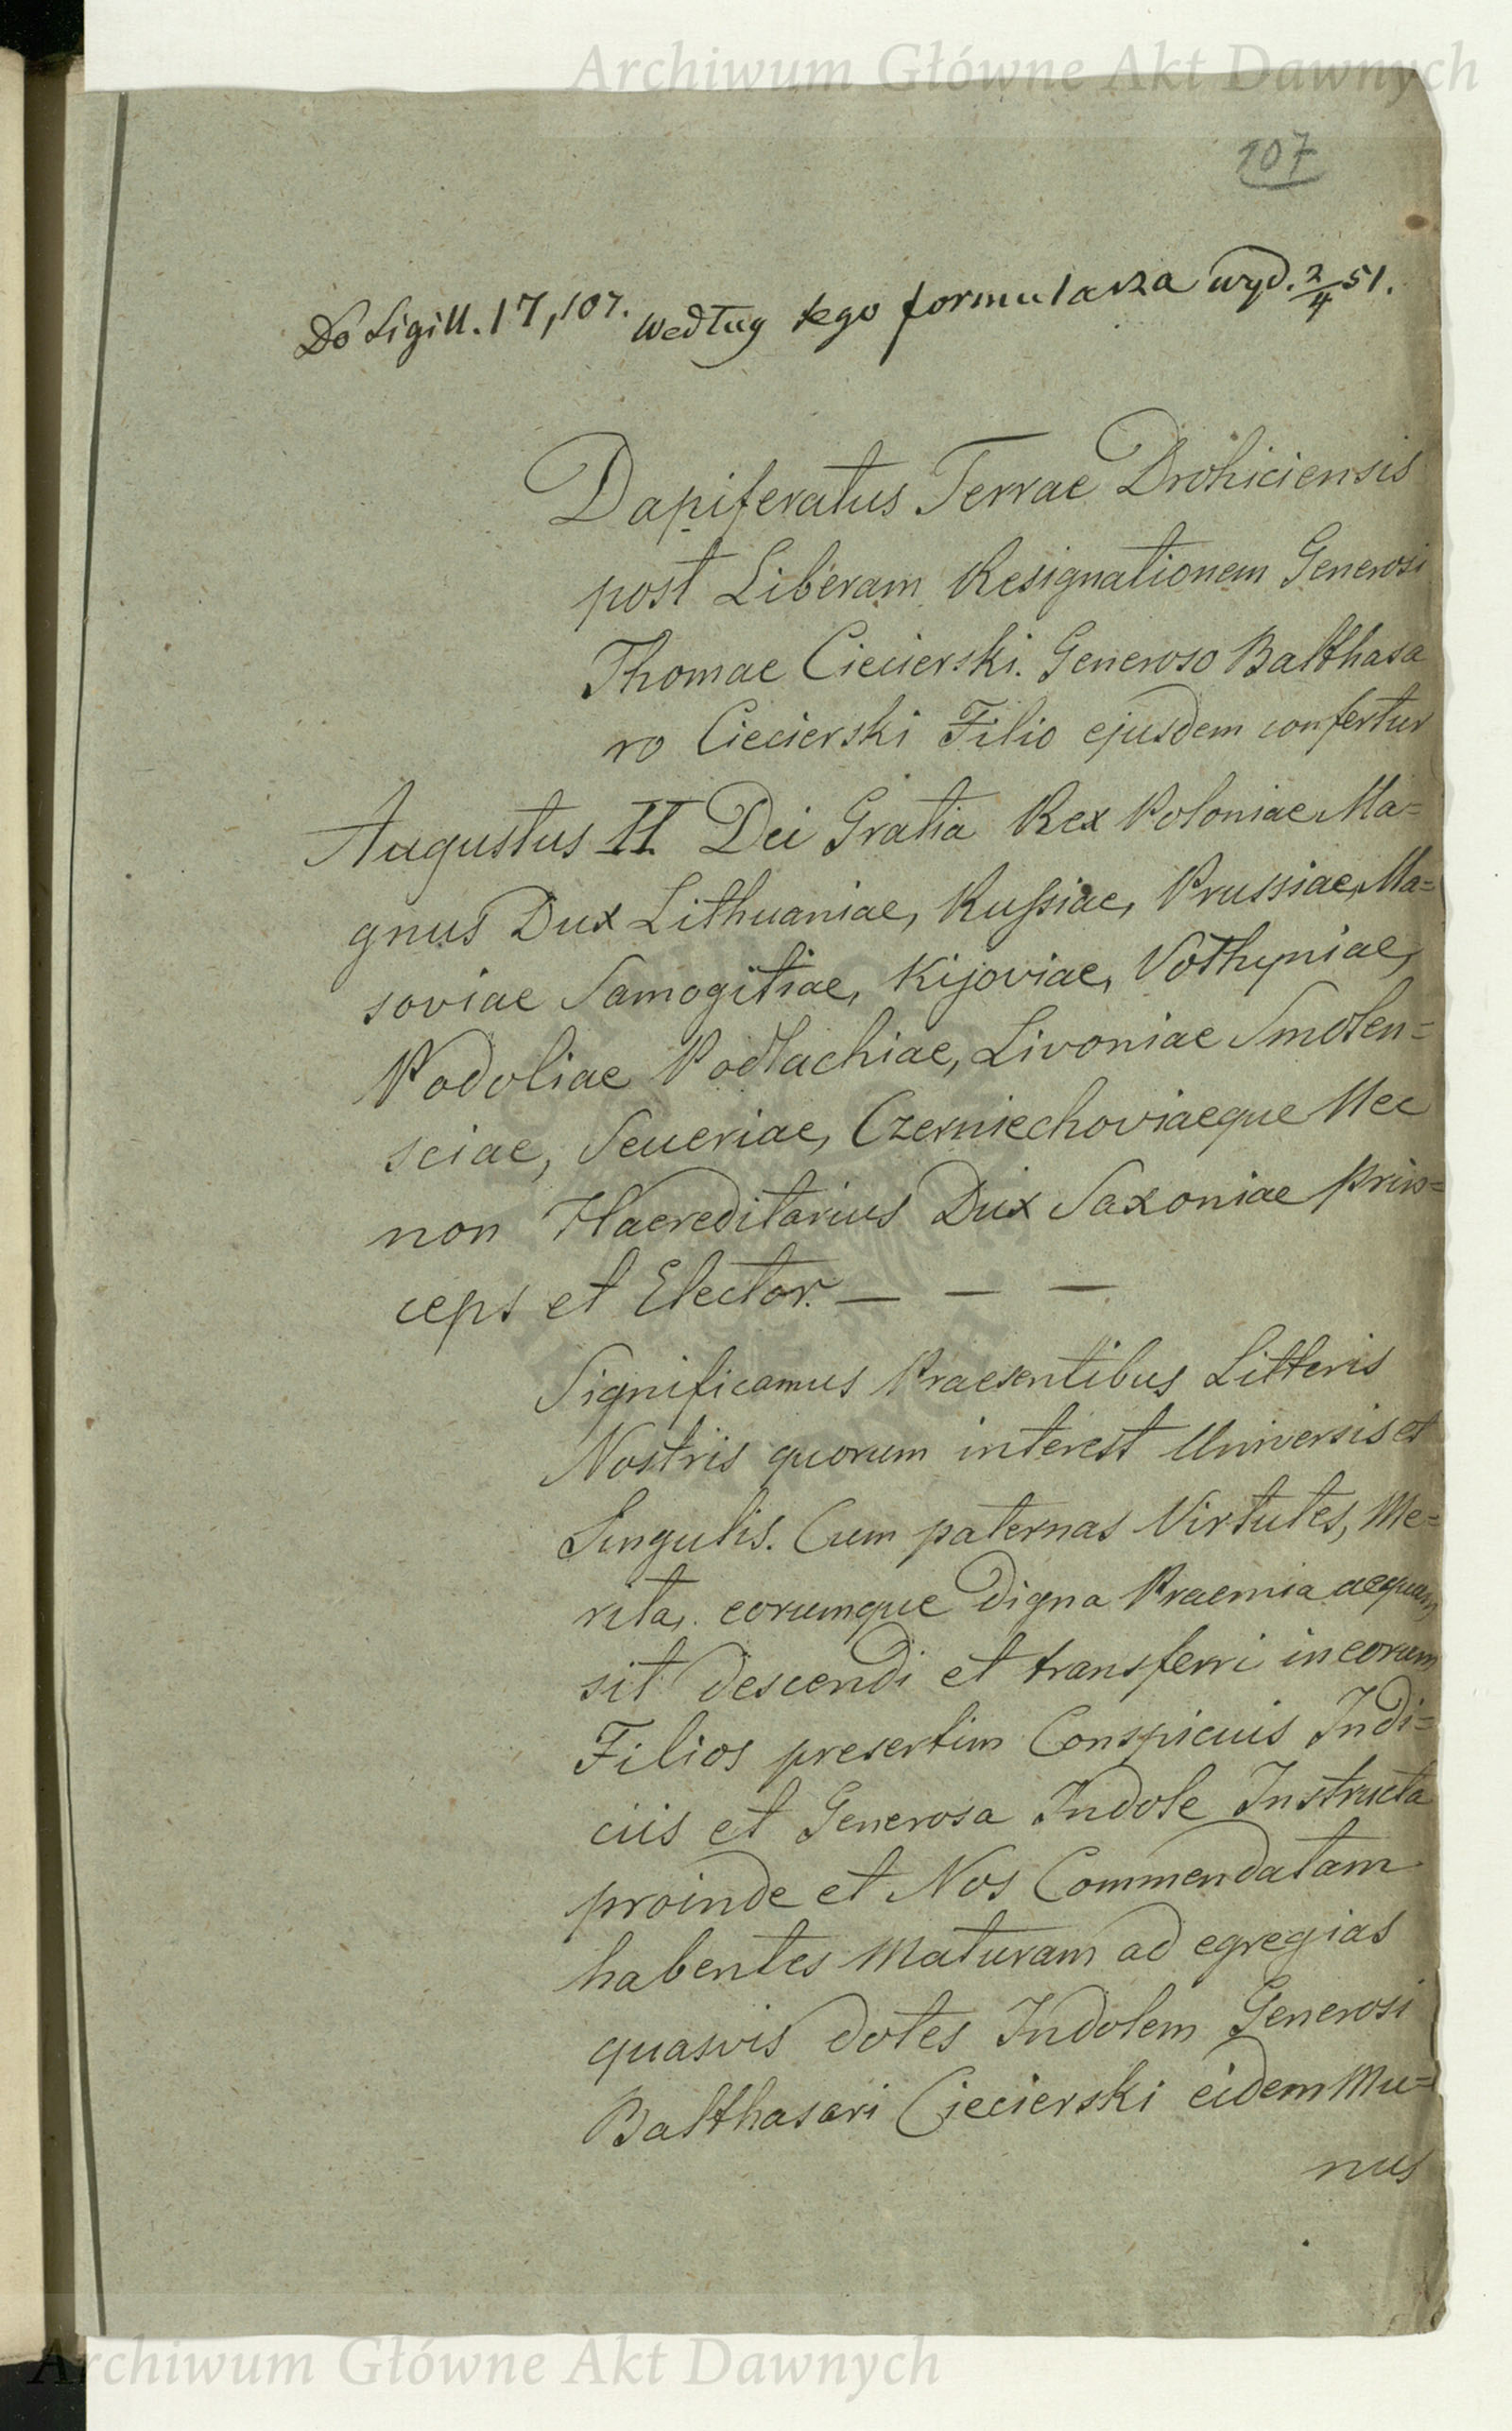 Archiwum Główne Akt Dawnych
107
Do Sigill. 17, 107. według tego formularza wyd. 2/4 51.
Dapiferatus Terrae Drohiciensis
post Liberam Resignationem Generosi
Thomae Ciecierski. Generoso Balthasa
ro Ciecierski Filio ejusdem confertur
Augustus II. Dei Gratia Rex Poloniae Ma=
gnus Dux Lithuaniae, Russiae, Prussiae, Ma=
soviae Samogitiae, Kijoviae, Volhyniae,
Podoliae Podlachiae, Livoniae Smolen=
sciae, Severiae, Czerniechoviaeque Nec
non Haereditarius Dux Saxoniae Prin=
ceps et Elector. — — —
Significamus Praesentibus Litteris
Nostris quorum interest Universis et
Singulis. Cum paternas Virtutes, Me=
rita, eorumque digna Praemia aequum
sit descendi et transferri in eorum
Filios presertim Conspicuis Indi=
ciis et Generosa Indole Instructa
proinde et Nos Commendatam
habentes Maturam ad egregias
quasvis dotes Indolem Generosi
Balthasari Ciecierski eidem Mu=
nus
Archiwum Główne Akt Dawnych